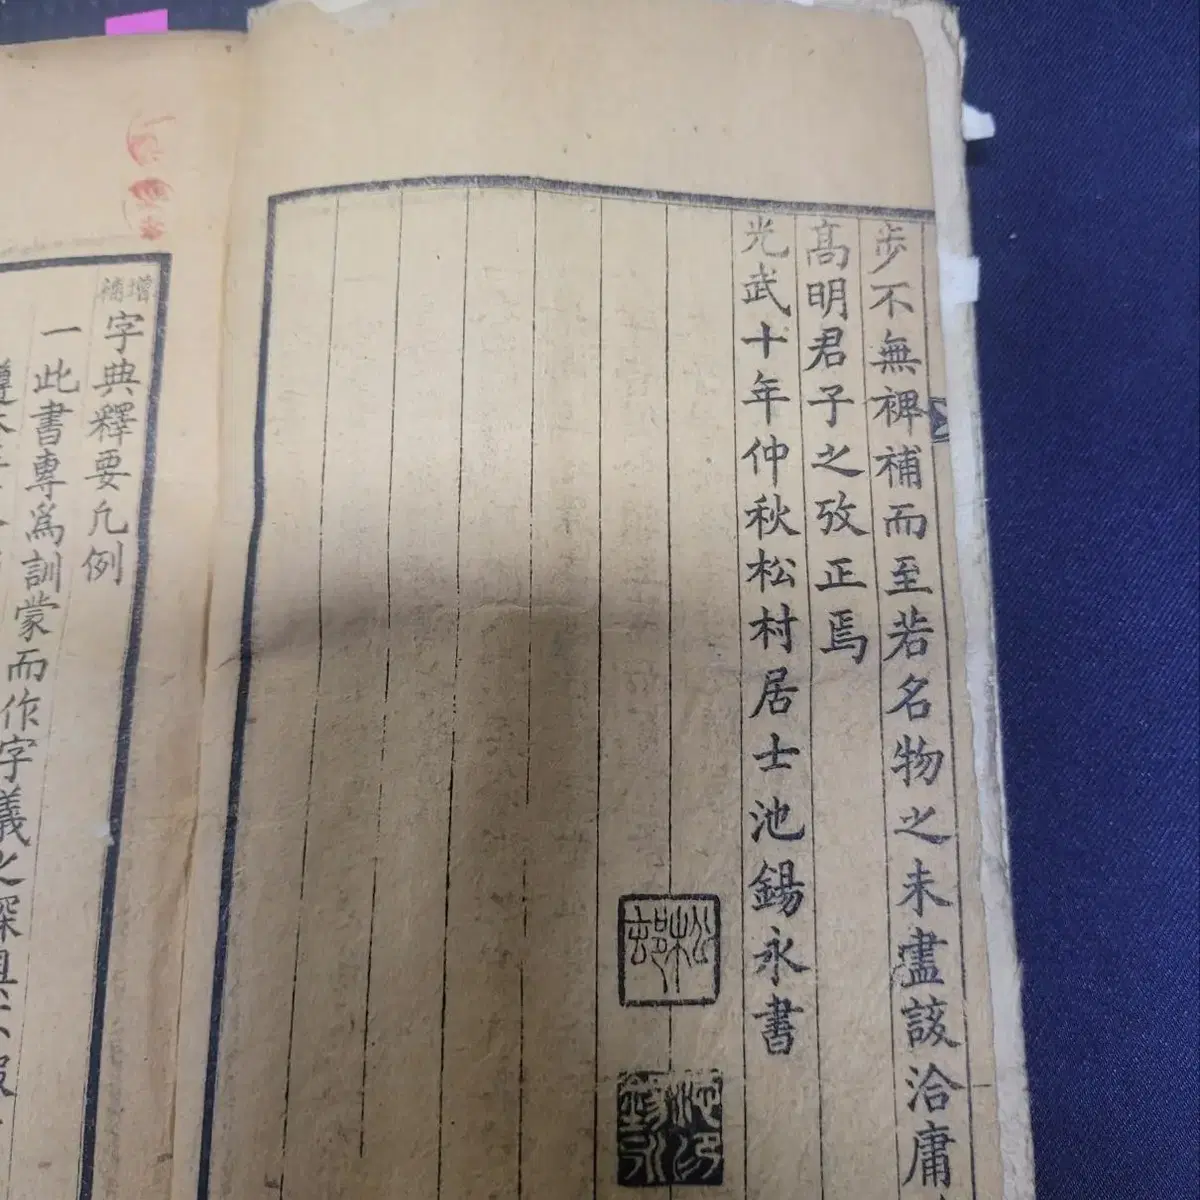 步不無裨補而至若名物之未盡該洽庸
高明君子之攷正焉
光武十年仲秋松村居士池錫永書
增補字典釋要凡例
一此書專爲訓蒙而作字義之深